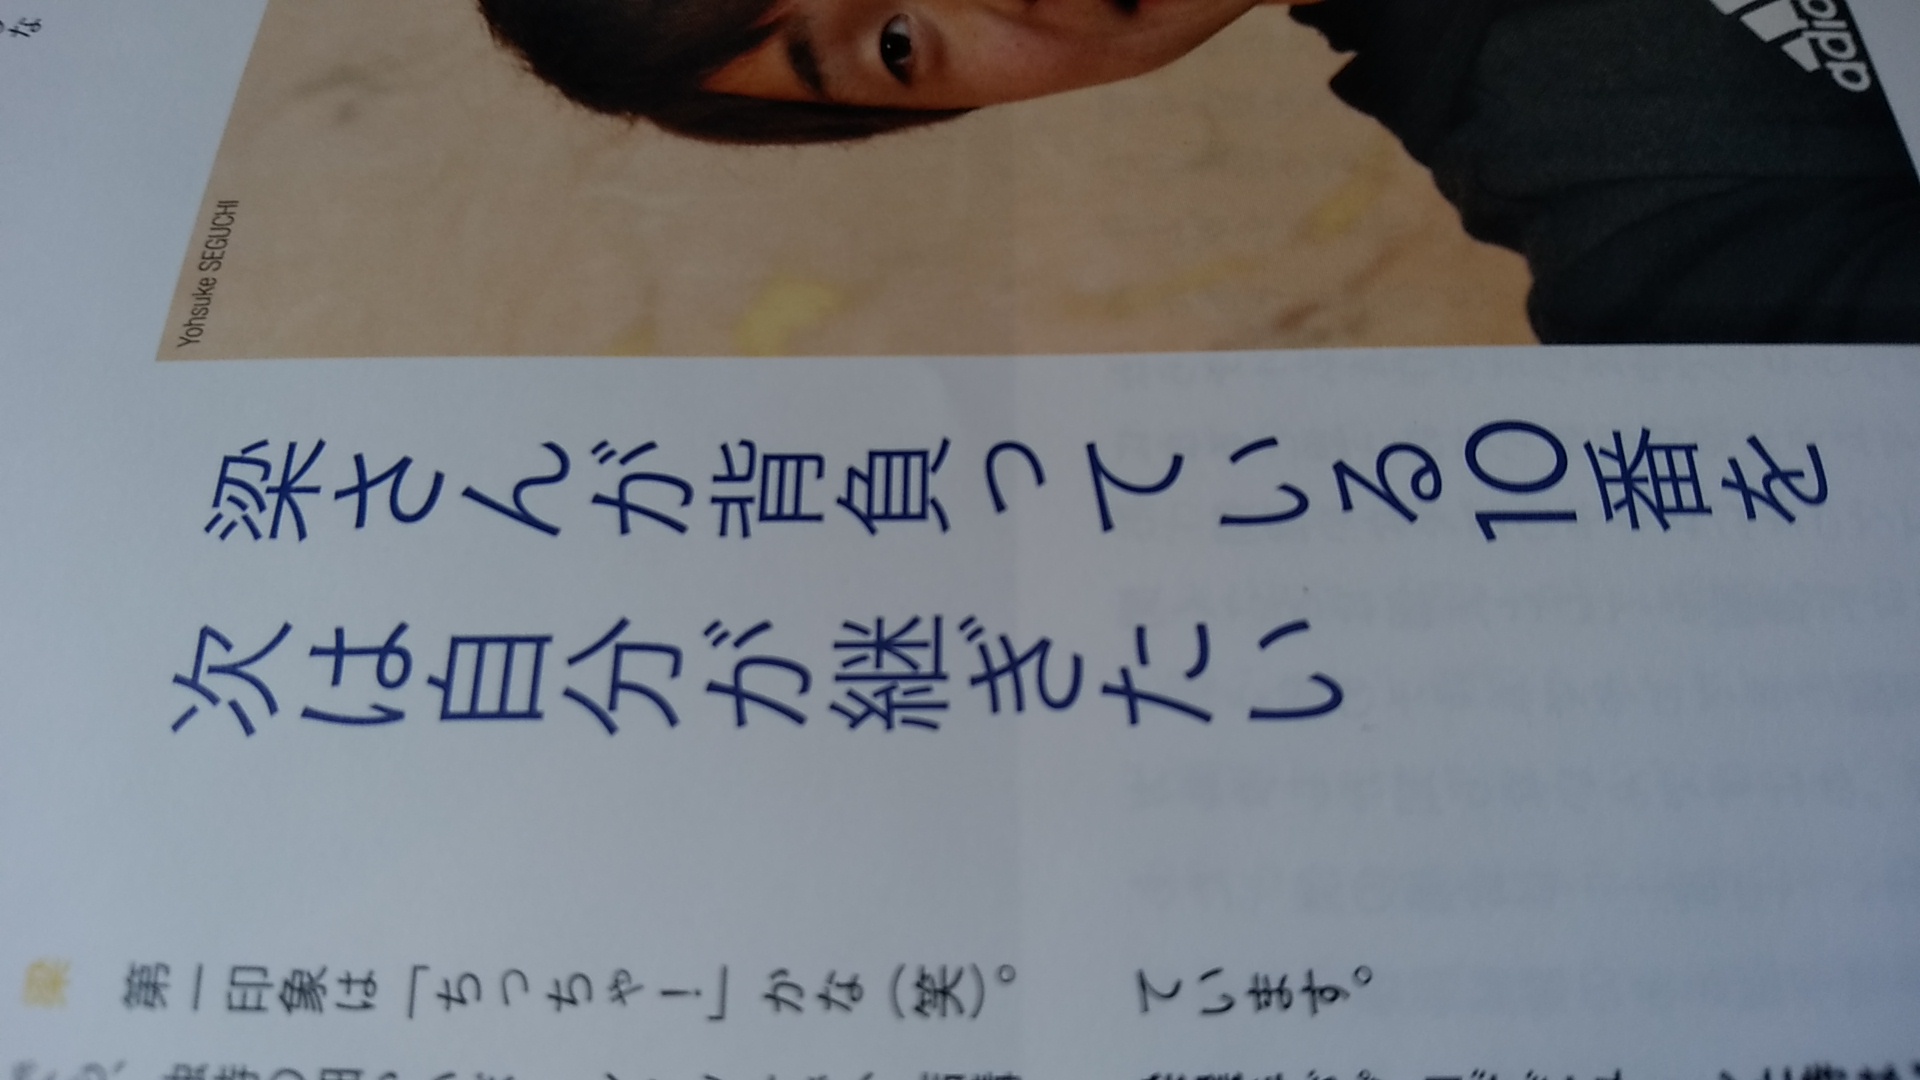 Yohsuke SEGUCHI
梁さんが背負っている10番を
次は自分が継ぎたい
梁 第一印象は「ちっちゃ！」かな（笑）。
ています。